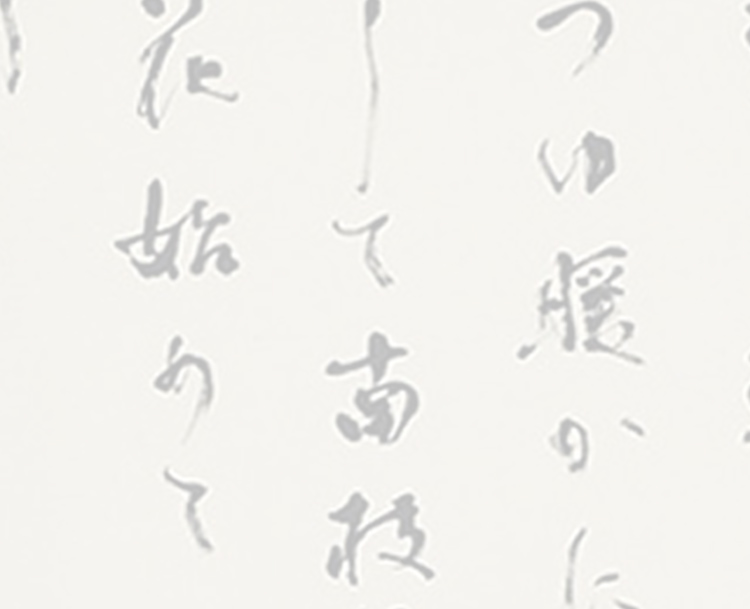 つゆ暖かに
して南枝
花始めて